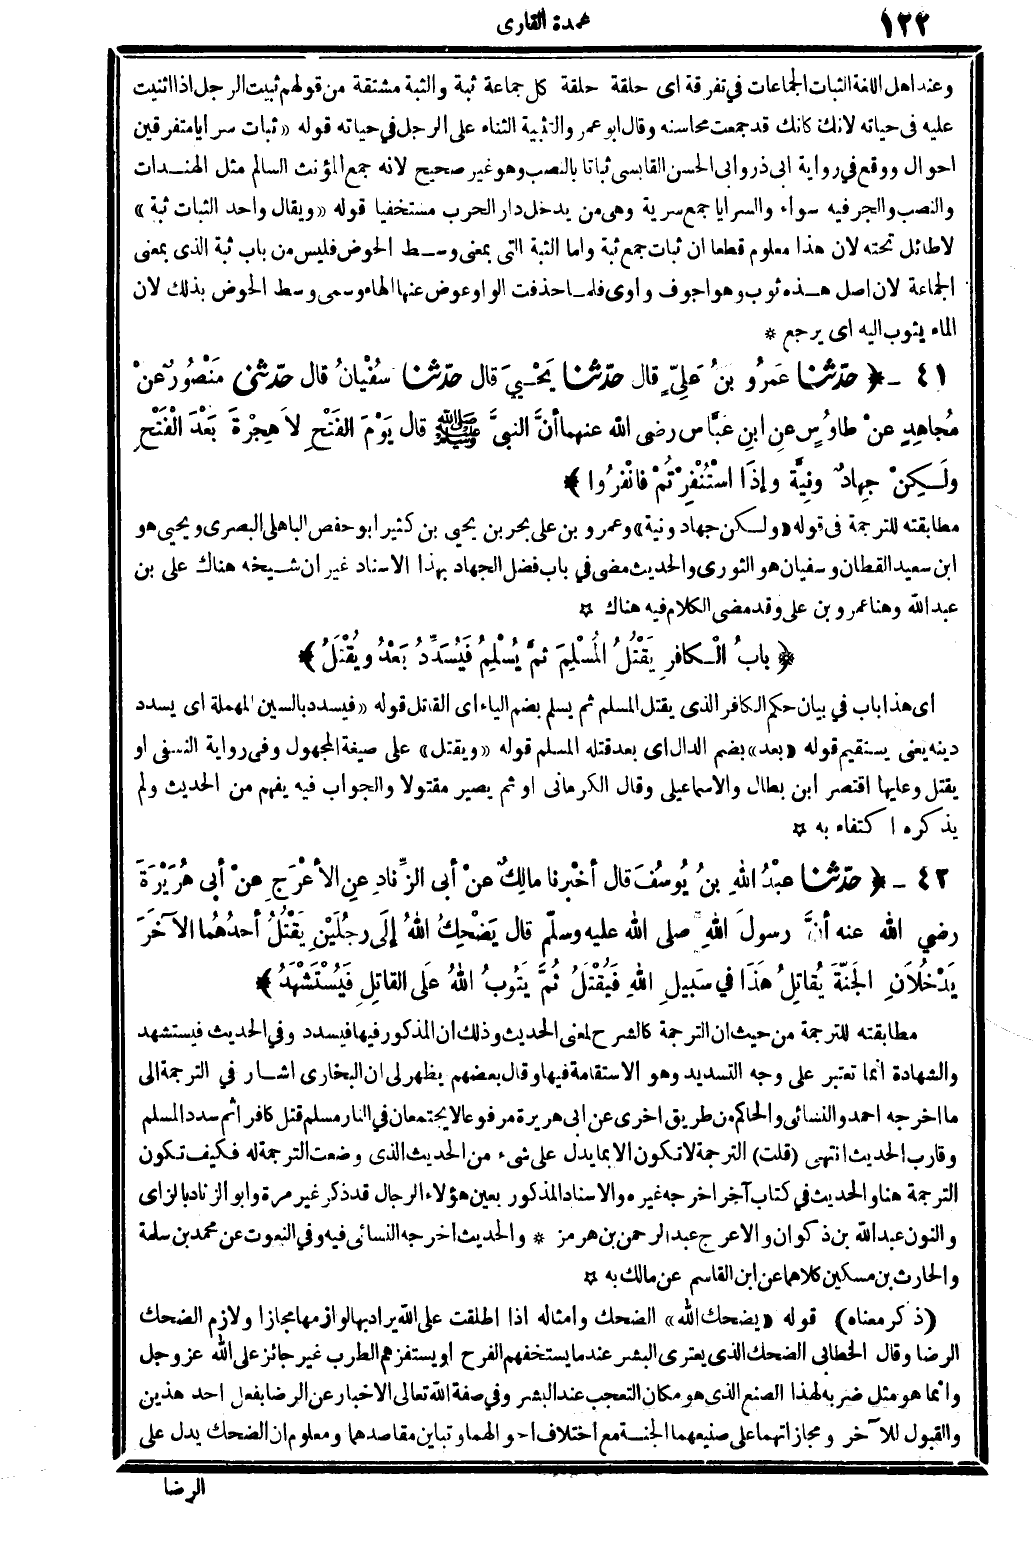 ١٢٢ عمدة القارى
وعند اهل اللغة الثبات الجماعات في تفرقة اى حلقة حلقة كل جماعة ثبة والثبة مشتقة من قولهم ثبيت الرجل اذا اثنيت
عليه فى حياته لانك كانك قد جمعت محاسنه وقال ابو عمر والتثبية الثناء على الرجل في حياته قوله «ثبات سرايا متفرقين
احوال ووقع في رواية ابى ذر وابى الحسن القابسى ثباتا بالنصب وهو غير صحيح لانه جمع المؤنث السالم مثل الهندات
والنصب والجر فيه سواء والسرايا جمع سرية وهى من يدخل دار الحرب مستخفيا قوله «ويقال واحد الثبات ثبة»
لاطائل تحته لان هذا معلوم قطعا ان ثبات جمع ثبة واما الثبة التى بمعنى وسط الحوض فليس من باب ثبة الذى بمعنى
الجماعة لان اصل هذه ثوب وهو اجوف واوى فلما حذفت الواو عوض عنها الهاء وسمى وسط الحوض بذلك لان
الماء يثوب اليه اى يرجع *
٤١ - ﴿ حدّثنا عَمرُو بنُ عَلِيٍّ قال حدّثنا يَحْيَ قال حدّثنا سفْيانُ قال حدّثنى مَنْصُورٌ عنْ
مُجاهِدٍ عنْ طاوُسٍ عنِ ابنِ عبَّاس رضى الله عنهما أنَّ النبىَّ ﷺ قال يَوْمَ الفَتْحِ لاَ هِجْرةَ بَعْدَ الْفَتْحِ
ولَكِنْ جِهادٌ ونِيَّة وإذَا اسْتُنْفِرْتُمْ فانْفرُوا ﴾
مطابقته للترجمة فى قوله «ولكن جهاد ونية» وعمرو بن على بحر بن يحيى بن كثير ابو حفص الباهلى البصرى ويحيى هو
ابن سعيد القطان وسفيان هو الثورى والحديث مضى في باب فضل الجهاد بهذا الاسناد غير ان شيخه هناك على بن
عبد الله وهنا عمرو بن على وقد مضى الكلام فيه هناك ۞
﴿ بابُ الْكافرِ يَقْتُلُ المُسْلِمَ ثمَّ يُسْلِمُ فَيُسَدِّدُ بَعْدُ ويُقْتَلُ ﴾
اى هذا باب في بيان حكم الكافر الذى يقتل المسلم ثم يسلم بضم الياء اى القاتل قوله «فيسدد بالسين المهملة اى يسدد
دينه يعنى يستقيم قوله «بعد» بضم الدال اى بعد قتله المسلم قوله «ويقتل» على صيغة المجهول وفى رواية النسفى او
يقتل وعليها اقتصر ابن بطال والاسماعيلى وقال الكرمانى او ثم يصير مقتولا والجواب فيه يفهم من الحديث ولم
يذكره اكتفاء به ۞
٤٢ - ﴿ حدّثنا عبْدُ اللهِ بنُ يُوسُفَ قال أخْبرنا مالِكٌ عنْ أبى الزِّنادِ عنِ الأعْرَجِ عنْ أبى هُرَيْرَةَ
رضي الله عنه أنَّ رسولَ اللهِ صلى الله عليه وسلّم قال يَضْحِكُ اللهُ إلَى رجُلَيْنِ يَقْتُلُ أحدُهُما الآخَرَ
يَدْخُلاَنِ الجَنّةَ يُقاتِلُ هَذَا في سَبيلِ اللهِ فَيُقْتَلُ ثُمَّ يَتُوبُ اللهُ علَى القاتلِ فَيُسْتَشْهَدُ ﴾
مطابقته للترجمة من حيث ان الترجمة كالشرح لمعنى الحديث وذلك ان المذكور فيها فيسدد وفي الحديث فيستشهد
والشهادة انما تعتبر على وجه التسديد وهو الاستقامة فيها وقال بعضهم يظهر لى ان البخارى اشار في الترجمة الى
ما اخرجه احمد والنسائى والحاكم من طريق اخرى عن ابى هريرة مرفوعا لا يجتمعان في النار مسلم قتل كافرا ثم سدد المسلم
وقارب الحديث انتهى (قلت) الترجمة لا تكون الا بما يدل على شىء من الحديث الذى وضعت الترجمة له فكيف تكون
الترجمة هنا والحديث في كتاب آخر اخرجه غيره والاسناد المذكور بعين هؤلاء الرجال قد ذكر غير مرة وابو الزناد بالزاى
والنون عبد الله بن ذكوان والاعرج عبد الرحمن بن هرمز * والحديث اخرجه النسائى فيه وفي النعوت عن محمد بن سلمة
والحارث بن مسكين كلاهما عن ابن القاسم عن مالك به ۞
(ذكر معناه) قوله «يضحك الله» الضحك وامثاله اذا اطلقت على الله يراد بها لوازمها مجازا ولازم الضحك
الرضا وقال الخطابى الضحك الذى يعترى البشر عند ما يستخفهم الفرح او يستفزهم الطرب غير جائز على الله عز وجل
وانما هو مثل ضربه لهذا الصنع الذى هو مكان التعجب عند البشر وفي صفة الله تعالى الاخبار عن الرضا بفعل احد هذين
والقبول للآخر ومجازاتهما على صنيعهما الجنة مع اختلاف احوالهما وتباين مقاصدهما ومعلوم ان الضحك يدل على
الرضا